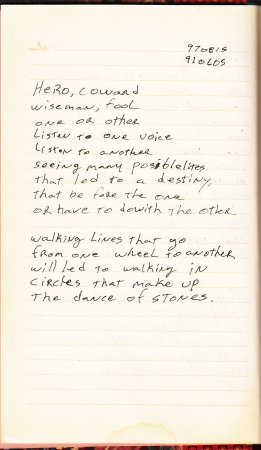 970815
910605
Hero, coward
wiseman, fool
one or other
Listen to one voice
Listen to another
seeing many posiblelites
that led to a destiny,
that be fore the one
or have to dowith the other
walking lines that go
from one wheel to another
will led to walking in
circles that make up
the dance of stones.